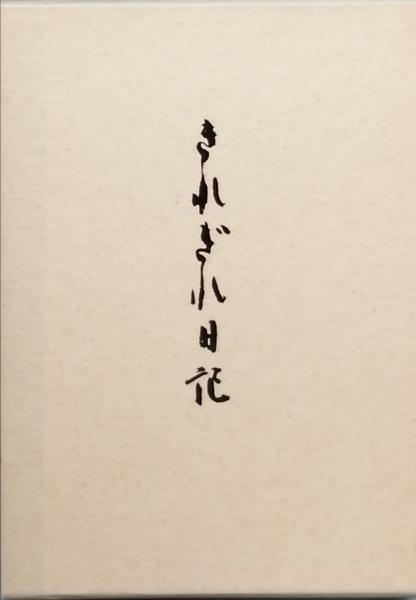 きれぎれ日記